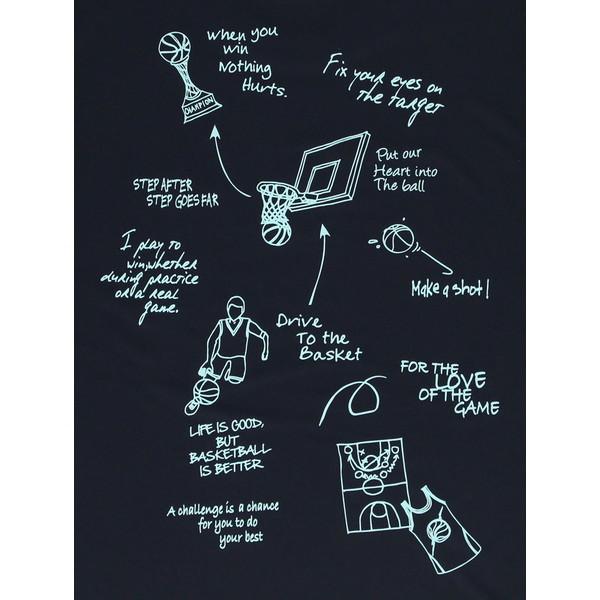 When you
win
Nothing
Hurts.
CHAMPION
Fix your eyes on
The target
Put our
Heart into
The ball
STEP AFTER
STEP GOES FAR
I play to
win,whether
during practice
or a real
game.
Make a shot!
Drive
To the
Basket
FOR THE
LOVE
OF THE
GAME
LIFE IS GOOD,
BUT
BASKETBALL
IS BETTER
A challenge is a chance
for you to do
your best